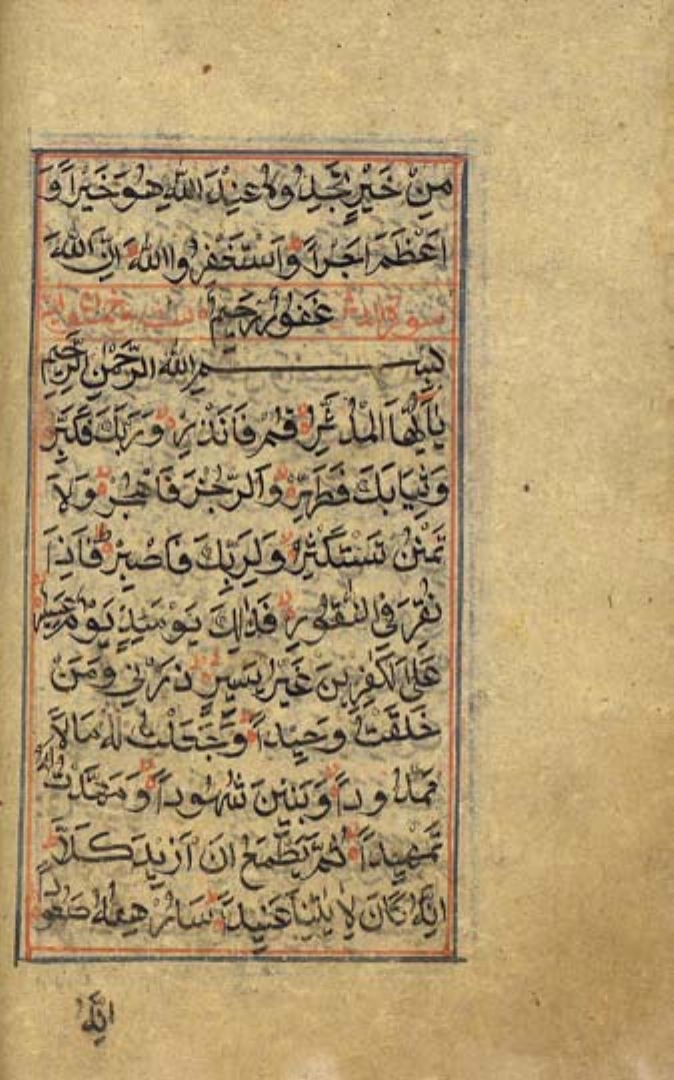 مِنْ خَيْرٍ تَجِدُوهُ عِنْدَ اللهِ هُوَ خَيْرًا وَ
اَعْظَمَ اَجْرًا وَاسْتَغْفِرُوا اللهَ اِنَّ اللهَ
سورة المدثر غَفُورٌ رَحِيمٌ
بِسْمِ اللهِ الرَّحْمٰنِ الرَّحِيمِ
يَااَيُّهَا الْمُدَّثِّرُ قُمْ فَاَنْذِرْ وَرَبَّكَ فَكَبِّرْ
وَثِيَابَكَ فَطَهِّرْ وَالرُّجْزَ فَاهْجُرْ وَلَا
تَمْنُنْ تَسْتَكْثِرُ وَلِرَبِّكَ فَاصْبِرْ فَاِذَا
نُقِرَ فِى النَّاقُورِ فَذٰلِكَ يَوْمَئِذٍ يَوْمٌ عَسِيرٌ
عَلَى الْكٰفِرِينَ غَيْرُ يَسِيرٍ ذَرْنِي وَمَنْ
خَلَقْتُ وَحِيدًا وَجَعَلْتُ لَهُ مَالًا
مَمْدُودًا وَبَنِينَ شُهُودًا وَمَهَّدْتُ لَهُ
تَمْهِيدًا ثُمَّ يَطْمَعُ اَنْ اَزِيدَ كَلَّا
اِنَّهُ كَانَ لِاٰيٰتِنَا عَنِيدًا سَاُرْهِقُهُ صَعُودًا
اِنَّهُ